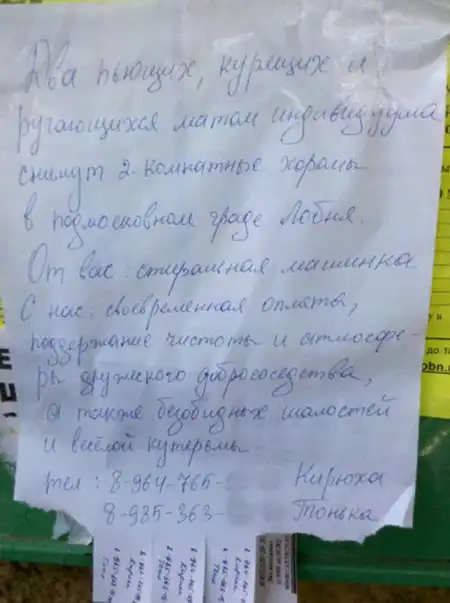 Два пьющих, курящих и
ругающихся матом индивидуума
снимут 2-комнатные хоромы
в подмосковном граде Лобня.
От вас: стиральная машинка
С нас: своевременная оплата,
поддержание чистоты и атмосфе-
ры дружеского добрососедства,
а также безобидных шалостей
и весёлой кутерьмы
тел: 8-964-765- Кирюха
8-985-363- Тонька
до 18
obn.